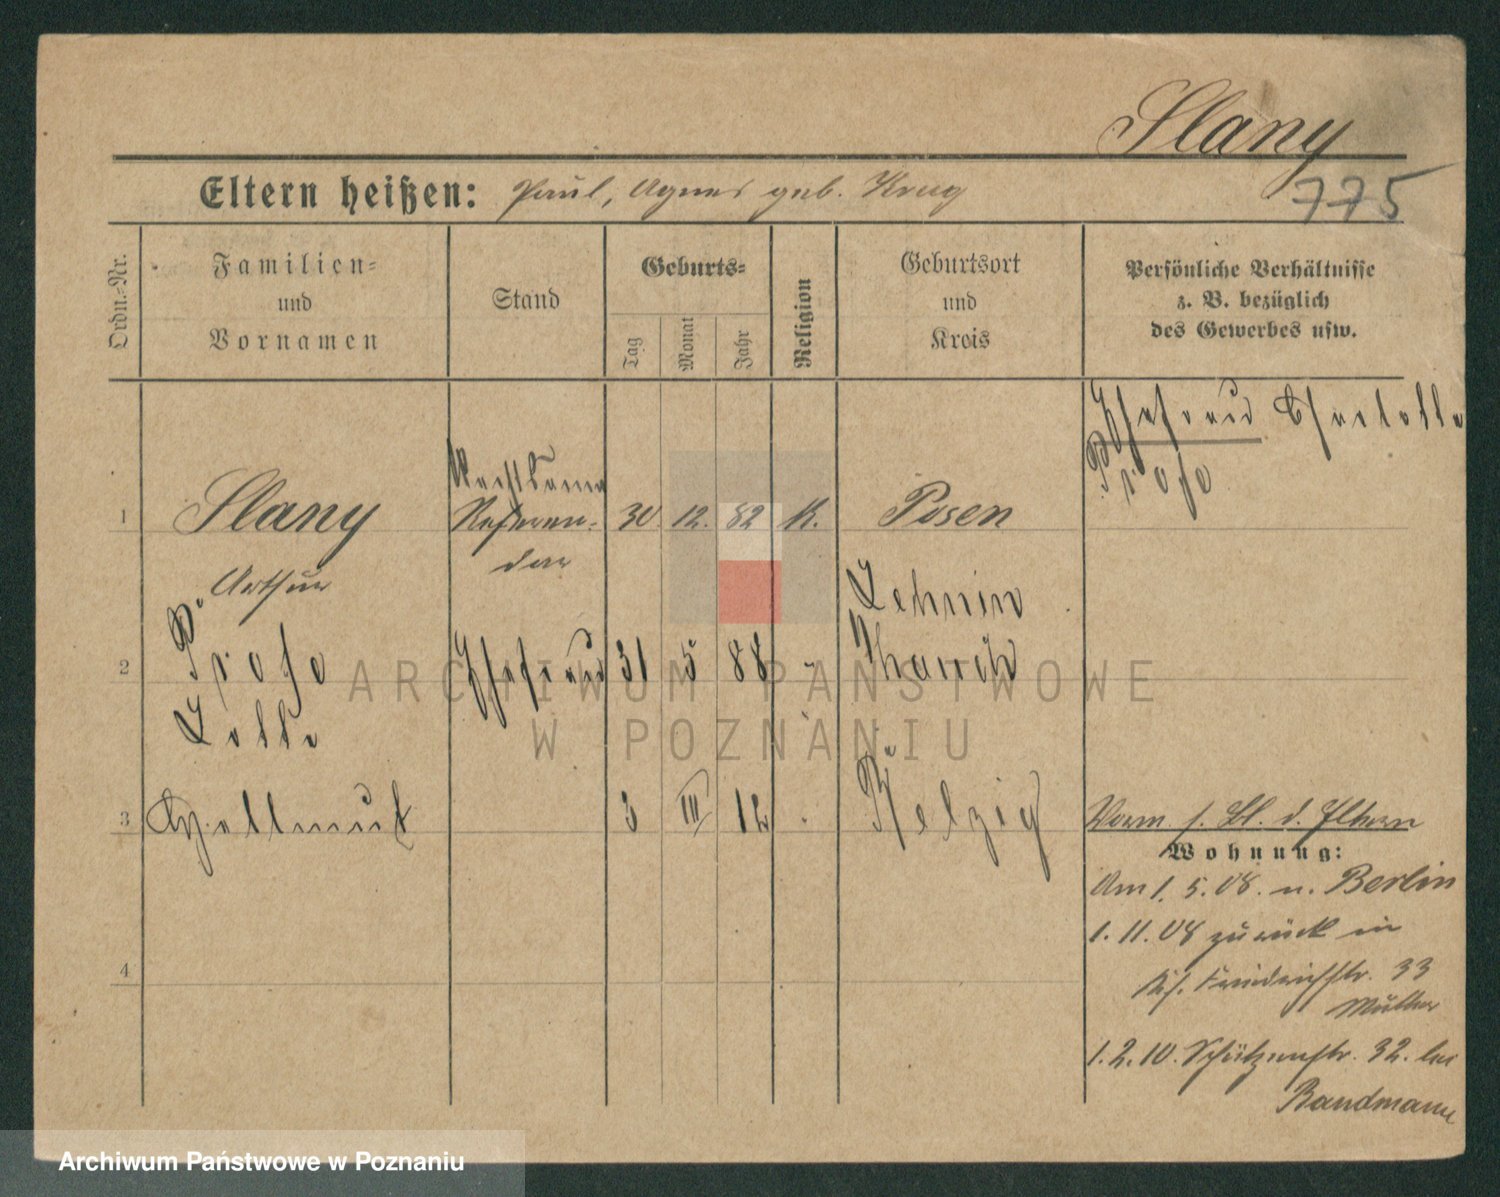 Slany
775
Eltern heißen: Paul, Agnes geb. Krug
Ordn.=Nr.
Familien=
und
Vornamen
Stand
Geburts=
Tag
Monat
Jahr
Religion
Geburtsort
und
Kreis
Persönliche Verhältnisse
z. B. bezüglich
des Gewerbes usw.
Ehefrau Charlotte
Prose
1 Slany Referen= 30. 12. 82 K. Posen
dar
Arthur
Lehnin
2 Ehefrau 31 5 88
Lotte
3 Hellmut 3 III 12
Wohnung:
Am 1. 5. 08. n. Berlin
1. 11. 08 zurück in
Friedrichstr. 33
Müller
1. 2. 10. Schützenstr. 32. bei
Bandmann
4
ARCHIWUM PAŃSTWOWE
W POZNANIU
Archiwum Państwowe w Poznaniu